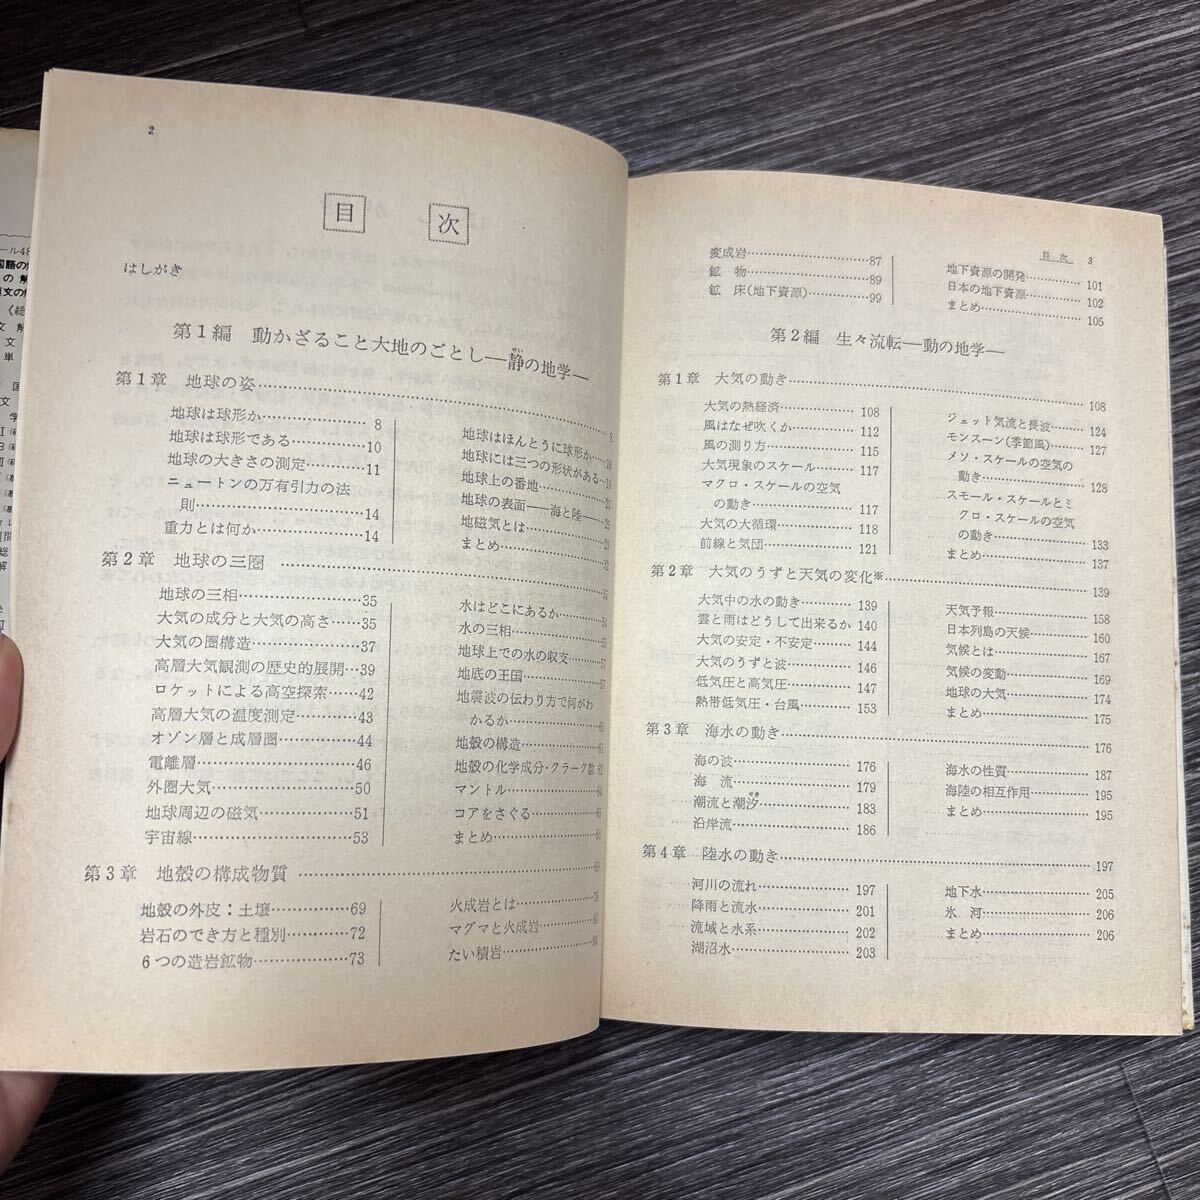 2
目次
はしがき
第1編 動かざること大地のごとし―静の地学―
せい
第1章 地球の姿…………8
地球は球形か…………8
地球は球形である…………10
地球の大きさの測定…………11
ニュートンの万有引力の法
則…………14
重力とは何か…………14
地球はほんとうに球形か……16
地球には三つの形状がある…19
地球上の番地…………23
地球の表面――海と陸……25
地磁気とは…………29
まとめ…………32
第2章 地球の三圏…………35
地球の三相…………35
大気の成分と大気の高さ……35
大気の圏構造…………37
高層大気観測の歴史的展開…39
ロケットによる高空探索……42
高層大気の温度測定…………43
オゾン層と成層圏…………44
電離層…………46
外圏大気…………50
地球周辺の磁気…………51
宇宙線…………53
水はどこにあるか…………54
水の三相…………55
地球上での水の収支…………57
地底の王国…………57
地震波の伝わり方で何がわ
かるか…………60
地殻の構造…………61
地殻の化学成分・クラーク数 62
マントル…………64
コアをさぐる…………65
まとめ…………
第3章 地殻の構成物質…………69
地殻の外皮：土壌…………69
岩石のでき方と種別…………72
6つの造岩鉱物…………73
火成岩とは…………76
マグマと火成岩…………80
たい積岩…………84
目次 3
変成岩…………87
鉱物…………89
鉱床(地下資源)…………99
地下資源の開発…………101
日本の地下資源…………102
まとめ…………105
第2編 生々流転―動の地学―
第1章 大気の動き…………108
大気の熱経済…………108
風はなぜ吹くか…………112
風の測り方…………115
大気現象のスケール…………117
マクロ・スケールの空気
の動き…………117
大気の大循環…………118
前線と気団…………121
ジェット気流と長波…………124
モンスーン(季節風)…………127
メソ・スケールの空気の
動き…………128
スモール・スケールとミ
クロ・スケールの空気
の動き…………133
まとめ…………137
第2章 大気のうずと天気の変化※…………139
大気中の水の動き…………139
雲と雨はどうして出来るか 140
大気の安定・不安定…………144
大気のうずと波…………146
低気圧と高気圧…………147
熱帯低気圧・台風…………153
天気予報…………158
日本列島の天候…………160
気候とは…………167
気候の変動…………169
地球の大気…………174
まとめ…………175
第3章 海水の動き…………176
海の波…………176
海流…………179
潮流と潮汐…………183
せき
沿岸流…………186
海水の性質…………187
海陸の相互作用…………195
まとめ…………195
第4章 陸水の動き…………197
河川の流れ…………197
降雨と流水…………201
流域と水系…………202
湖沼水…………203
地下水…………205
氷河…………206
まとめ…………206